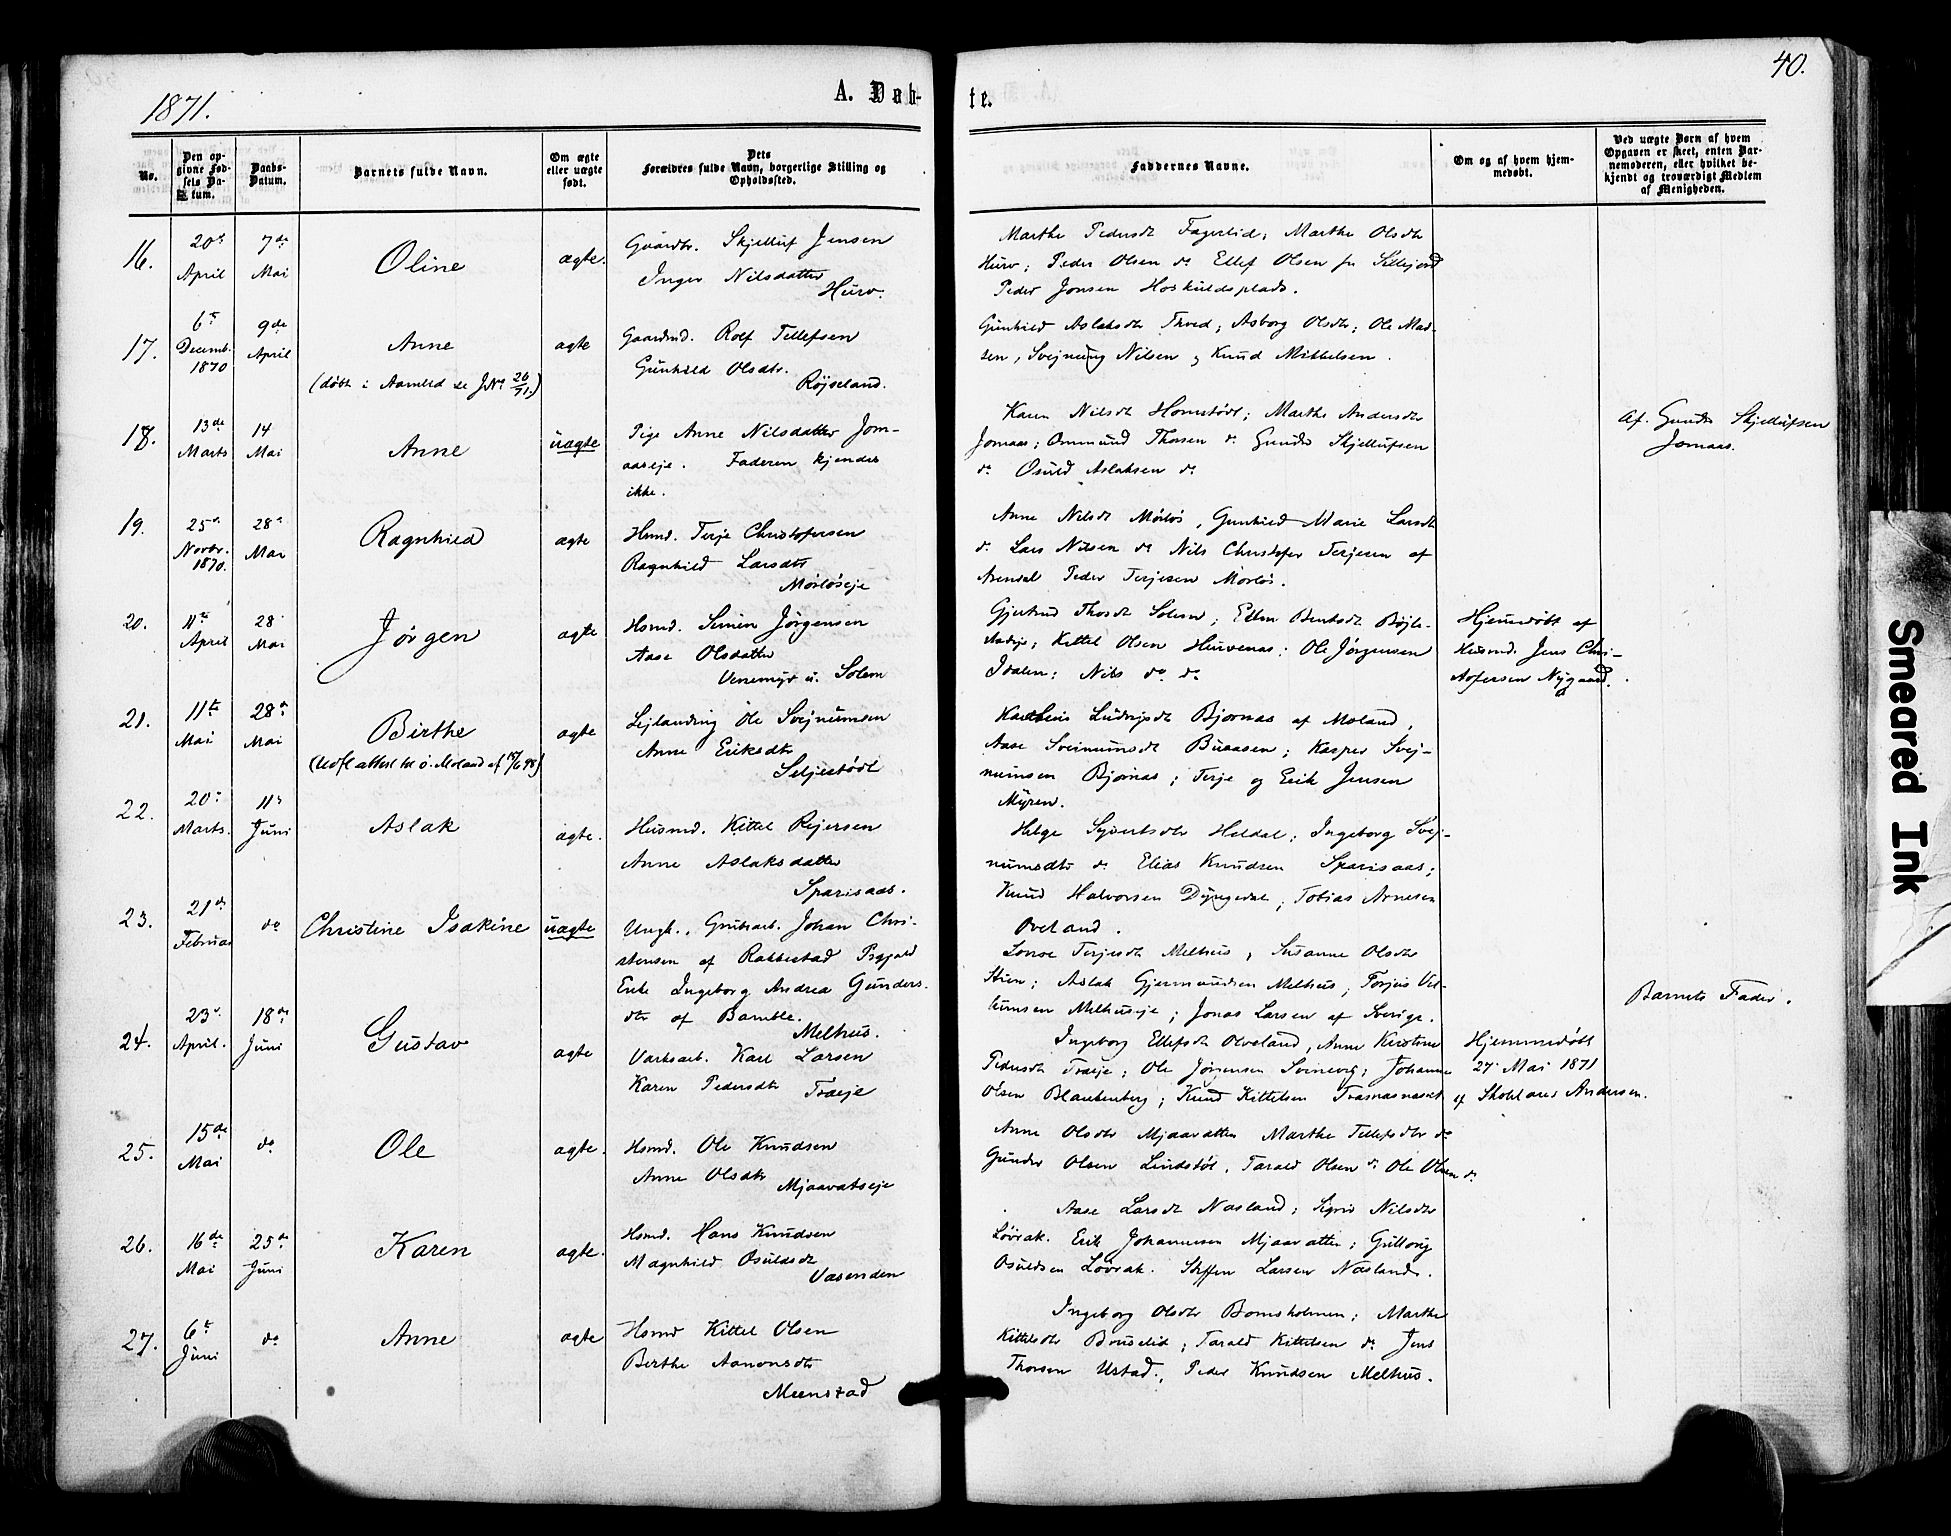 40.
1871.
A. Døb-
te.
No.
Den op-
givne Fød-
sels Da-
tum.
Daabs-
Datum.
Barnets fulde Navn.
Om ægte
eller uægte
født.
Dets
Forældres fulde Navn, borgerlige Stilling og
Opholdssted.
Faddernes Navne.
Om og af hvem hjem-
medøbt.
Ved uægte Børn af hvem
Opgaven er skeet, enten Bar-
nemoderen, eller hvilket be-
kjendt og troværdigt Medlem
af Menigheden.
16.
20de April
7de Mai
Oline
ægte.
Gaardbr. Skjelluf Jensen
Inger Nilsdatter
Hurv.
Marthe Pedersdt Fagerlid; Marthe Olsdtr
Hurv; Peder Olsen do Ellef Olsen fra Sillejord
Peder Jonsen Hoskuldsplads.
17.
6te Decemb. 1870
9de April
Anne
(døbt i Aamlid se JNo 26/71.)
ægte
Gaardmd. Rolf Tellefsen
Gunhild Olsdtr.
Röjseland.
Gunhild Aslaksdtr Thved; Asborg Olsdtr; Ole Mad-
sen, Svejnung Nilsen og Knud Mikkelsen.
18.
13de Marts
14 Mai
Anne
uægte
Pige Anne Nilsdatter Jom-
aaseje. Faderen kjendes
ikke.
Karen Nilsdt Homstödl; Marthe Andersdtr
Jomaas; Ommund Thorsen do Gunder Skjellufsen
do Osuld Aslaksen do
Af. Gunder Skjellufsen
Jomaas.
19.
25de Novbr. 1870.
28de Mai
Ragnhild
ægte
Hsmd. Terje Christofersen
Ragnhild Larsdtr
Mörlöseje
Anne Nilsdt Mörlös, Gunhild Marie Larsdt
do Lars Nilsen do Nils Christofer Terjesen af
Arendal Peder Terjesen Mörlös.
20.
11te April
28 Mai
Jörgen
ægte
Hsmd. Simen Jörgensen
Aase Olsdatter
Venemyr u. Solem
Gjertrud Thorsdt Solem; Ellen Berntsdt Böjle-
stadeje; Kittel Olsen Hurvenes; Ole Jörgensen
Idalen; Nils do do
Hjemmedöbt af
Husmd. Jens Chri-
stofersen Nygaard.
21.
11te Mai
28de Mai
Birthe
(Udfl attest til ö. Moland af 17/6 98)
ægte
Lejlænding Ole Svejnumsen
Anne Eriksdtr
Seljestödl
Ludvigsdt Bjornæs af Moland,
Aase Sveinumsdt Buaasen; Kasper Svej-
numsen Bjornæs; Terje og Erik Jensen
Myren.
22.
20de Marts.
11te Juni
Aslak
ægte.
Husmd. Kittel Rejersen
Anne Aslaksdatter
Sparisaas.
Helge Syvertsdtr Heldal; Ingeborg Svej-
numsdtr do Elias Knudsen Sparisaas;
Knud Halvorsen Dyngedal; Tobias Arnesen
Oveland.
23.
21de Februar
do
Christine Isakine
uægte
Ungk., Grubearb. Johan Chri-
stensen af Rakkestad Prgjæld
Enke Ingeborg Andrea Gunders-
dtr af Bamble.
Melhus.
Lovise Terjesdt Melhus, Susanne Olsdtr
Stien; Aslak Gjermundsen Melhus; Torjus Vel-
lumsen Melhuseje; Jonas Larsen af Sverige.
Barnets Fader.
24.
23de April.
18de Juni
Gustav
ægte
Værksarb. Karl Larsen
Karen Pedersdtr
Træeje
Ingeborg Ellefsdt Olveland, Anne Kirstine
Pedersdt Træeje; Ole Jörgensen Svineveg; Johannes
Olsen Blankenberg; Knud Kittelsen Træsnæsaset
Hjemmedöbt
27 Mai 1871
af Skolelærer Andersen.
25.
15de Mai
do
Ole
ægte.
Hsmd. Ole Knudsen
Anne Olsdtr
Mjaavatseje
Anne Olsdtr Mjaavatten Marthe Tellefsdtr do
Gunder Olsen Lindstöl, Tarald Olsen do Ole Olsen do
26.
16de Mai
25de Juni
Karen
ægte.
Hsmd. Hans Knudsen
Magnhild Osuldsdt
Vasenden
Aase Larsdt Næsland; Sigrid Nilsdtr
Lövrak. Erik Johannesen Mjaavatten; Guttorm
Osuldsen Lövrak. Steffen Larsen Næsland.
27.
6te Juni
do
Anne
ægte
Hsmd Kittel Olsen
Birthe Aanonsdtr
Meenstad
Ingeborg Olsdtr Bomsholmen; Marthe
Kittelsdtr Bruselid; Tarald Kittelsen do Jens
Thorsen Ustad., Peder Knudsen Melhus.
Smeared Ink